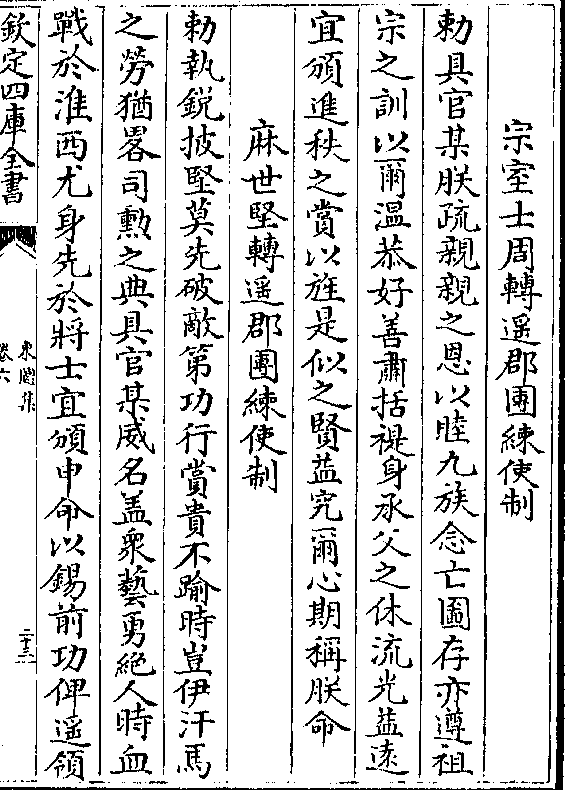 宗室士周轉遥郡團練使制
勅具官某朕疏親親之恩以睦九族念亡圖存亦遵祖
宗之訓以爾温恭好善肅括禔身承父之休流光益逺
宜頒進秩之賞以旌是似之賢益究爾心期稱朕命
麻世堅轉遥郡團練使制
勅執鋭披堅莫先破敵第功行賞貴不踰時豈伊汗馬
之勞猶畧司勲之典具官某威名盖衆藝勇絶人時血
戰於淮西尤身先於將士宜頒申命以錫前功俾遥領
欽定四庫全書
東牕集
卷六
二十三